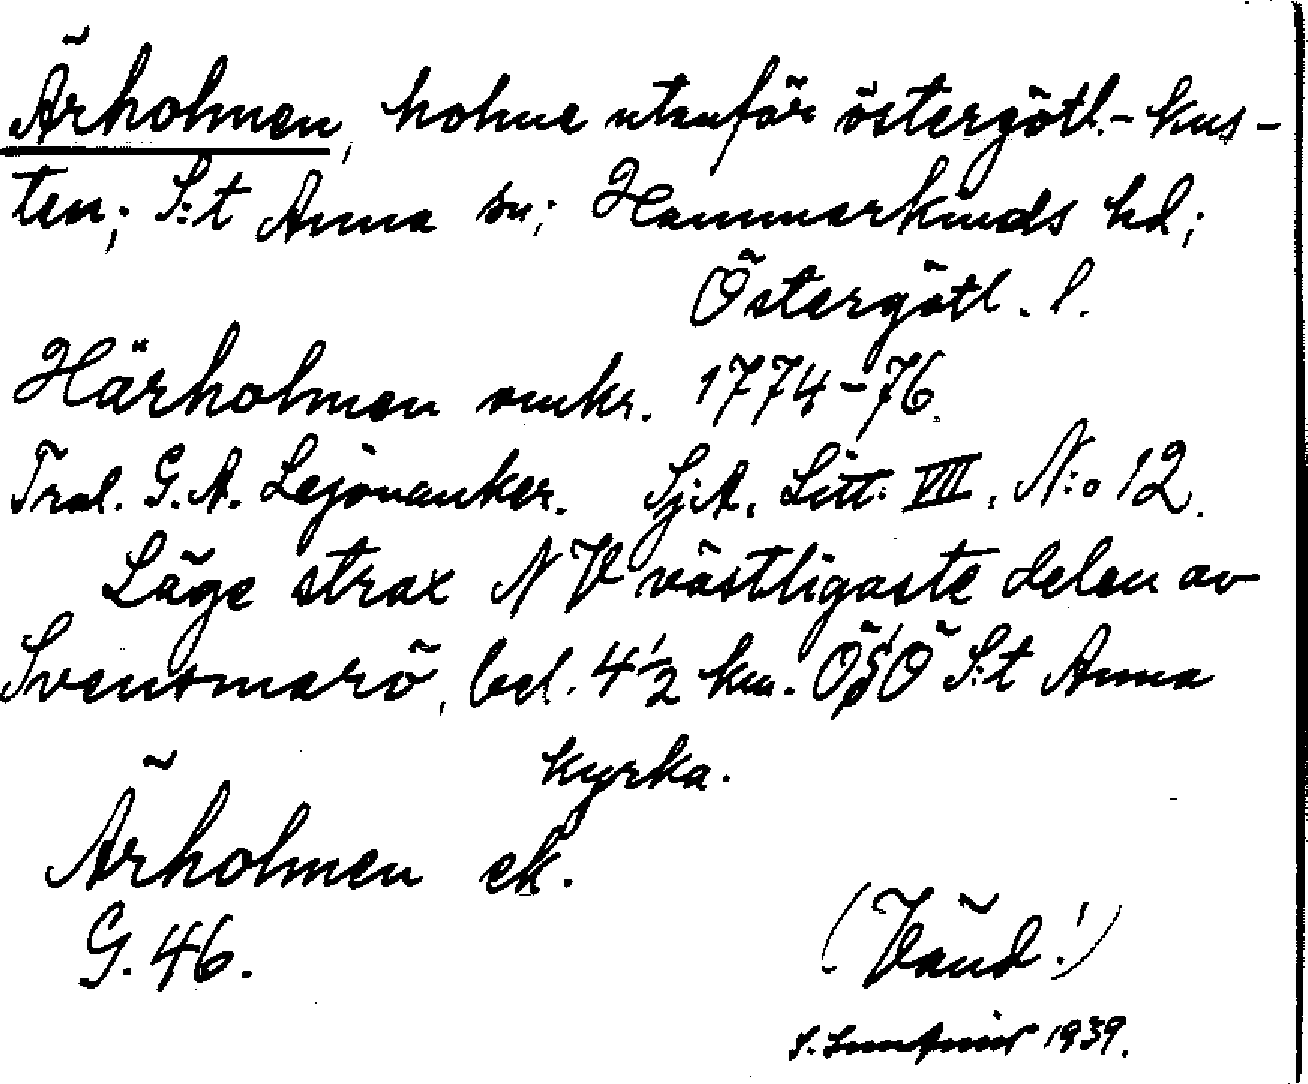 Ärholmen, holme utanför östergötl.-kus-
ten; S:t Anna sn; Hammarkinds hd;
Östergötl. l.
Härholmen omkr. 1774-76.
Tral. G. A. Lejonanker. Sj:A. Litt. VII. N:o 12.
Läge strax NV västligaste delen av
Svensmarö, bel. 4 1/2 km. ÖSÖ S:t Anna
kyrka.
Ärholmen ek.
G. 46.
(Vänd!)
1939.